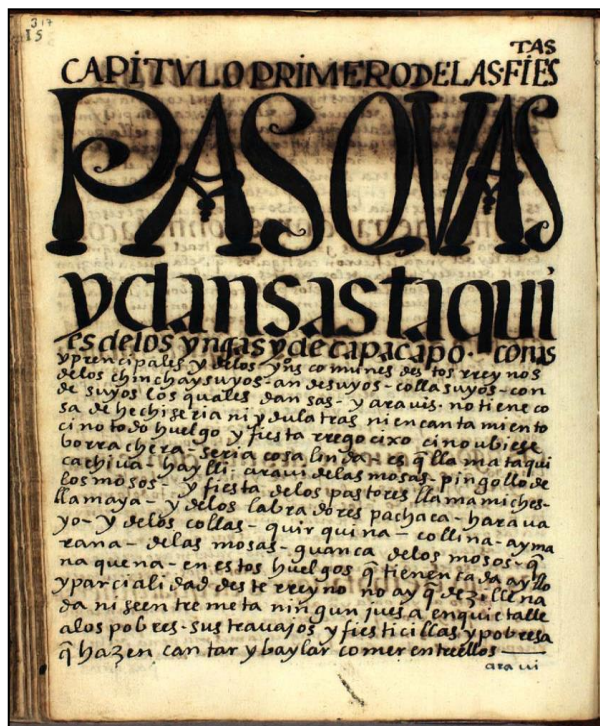 317
15
TAS
CAPÍTVLO PRIMERO DE LAS FÍES
PASQVAS
y dansas taqui
es de los yngas y de capac apo. conas
y prencipales y de los yos comunes destos rreynos
de los chinchaysuyos - andesuyos - collasuyos - con
de suyos los quales dansas - y arauis. no tiene co
sa de hechiseria ni ydulatras ni encantamiento
cino todo huelgo y fiesta rregocixo cino ubiese
borrachera - seria cosa linda - es q̃ llama taqui
cachiua - haylli araui de las mosas - pingollo de
los mosos - y fiesta de los pastores llamamiches -
llamaya - y de los labradores pachaca - harauà
yo - y de los collas - quirquina - collina - ayma
rana - de las mosas - guanca de los mosos - q̃
na quena - en estos huelgos q̃ tienen cada ayllo
y parcialidad deste rreyno no ay q̃ dezille na
da ni se entremeta ningun jues a enquietalle
a los pobres - sus trauajos y fiesticillas y pobresa
q̃ hazen cantar y baylar comer entre ellos
araui